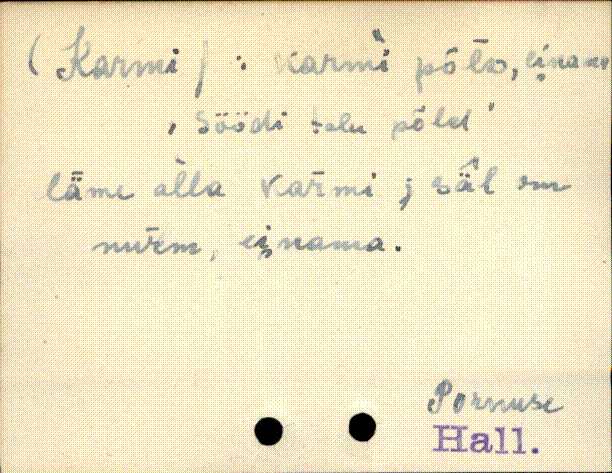 (Karmi) : karmi põlv, einama
, Söödi talu põlel '
läme alla karmi ; säl om
nurm, einama.
Pornuse
Hall.